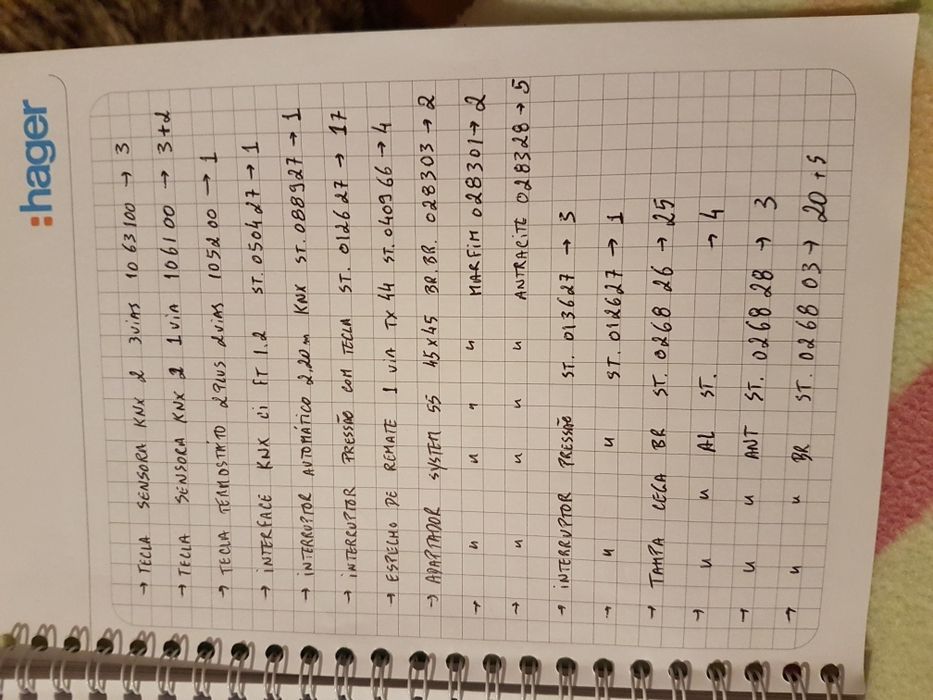 :hager
→ TECLA SENSORA KNX 2 3 VIAS 10 63 100 → 3
→ TECLA SENSORA KNX 2 1 VIA 106 1 00 → 3+2
→ TECLA TERMOSTÁTO 2 PLUS 2 VIAS 1052 00 → 1
→ INTERFACE KNX Ci FT 1.2 ST. 0504 27 → 1
→ INTERRUPTOR AUTOMÁTICO 2.20m KNX ST. 0889 27 → 1
→ INTERRUPTOR PRESSÃO COM TECLA ST. 0126 27 → 17
→ ESPELHO DE REMATE 1 VIA TX 44 ST. 0409 66 → 4
→ ADAPTADOR SYSTEM 55 45x45 BR.BR. 028303 → 2
→ " " " " MARFIM 028301 → 2
→ " " " " ANTRACITE 028328 → 5
→ INTERRUPTOR PRESSÃO ST. 013627 → 3
→ " " ST. 012627 → 1
→ TAMPA CEGA BR ST. 0268 26 → 25
→ " " AL ST. → 4
→ " " ANT ST. 0268 28 → 3
→ " " BR ST. 0268 03 → 20 + 5